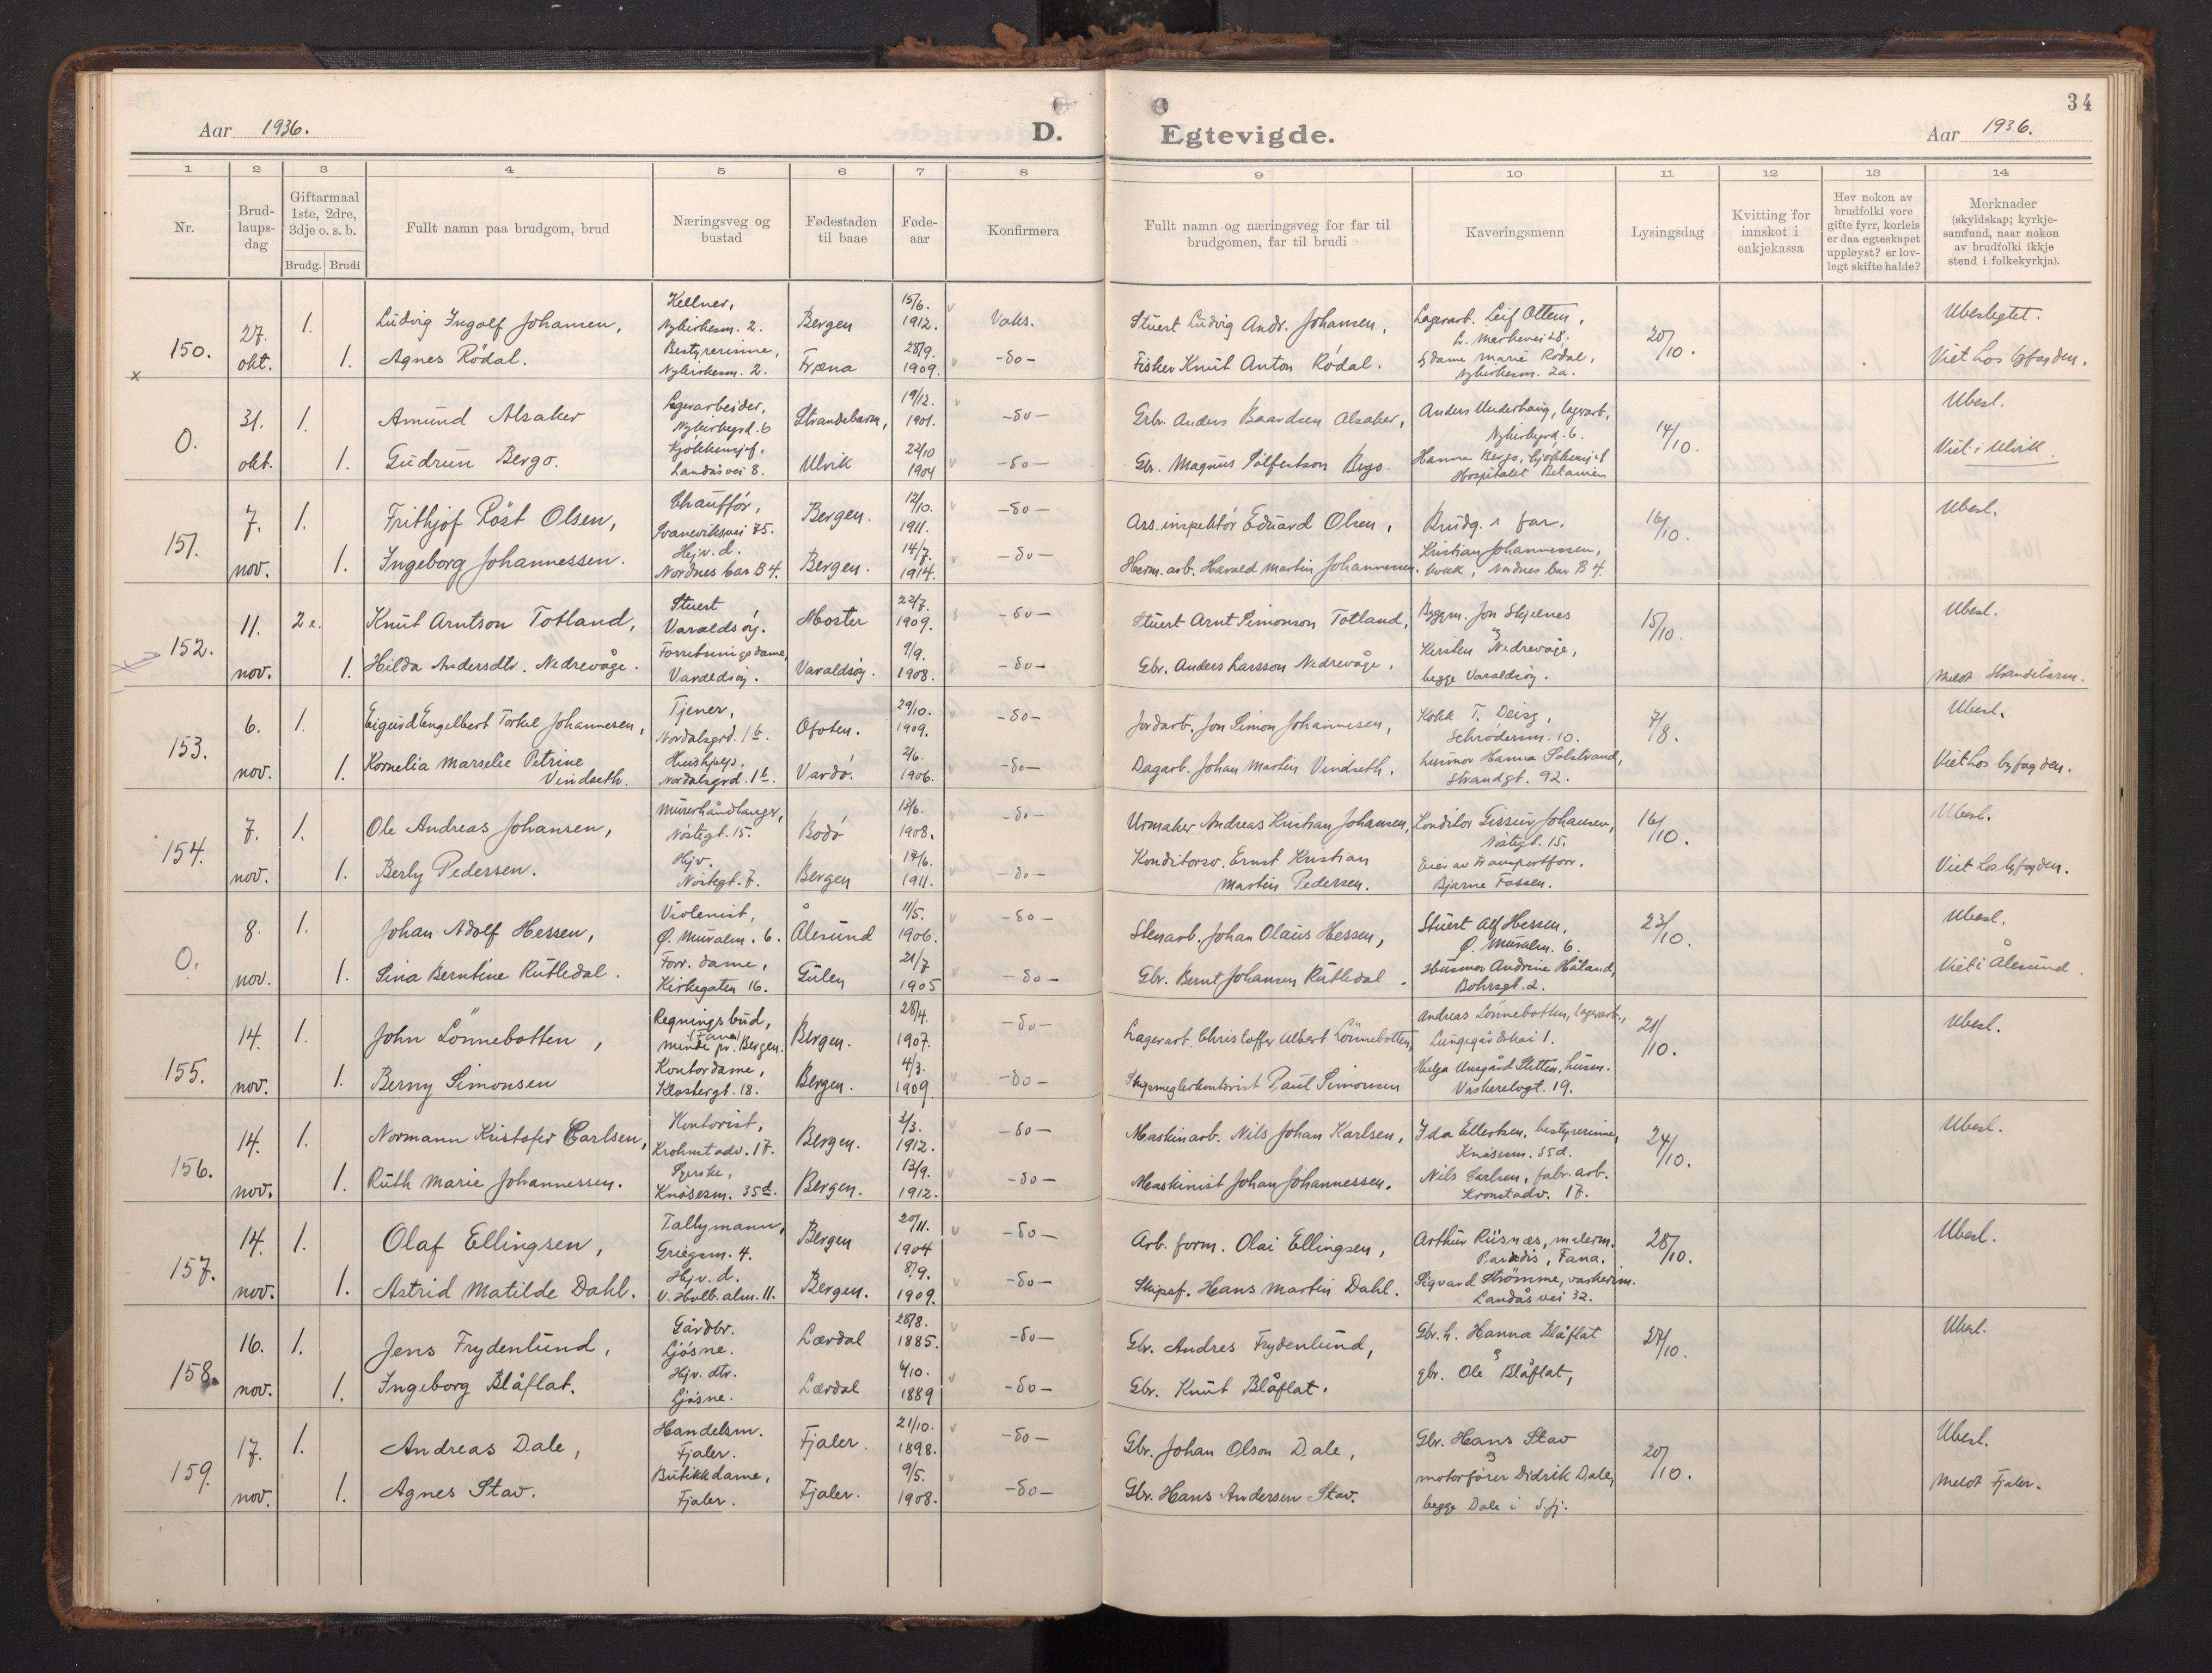 34
Aar 1936.
D. Egtevigde.
Aar 1936.
1 2 3 4 5 6 7 8 9 10 11 12 13 14
Nr.
Brud-
laups-
dag
Giftarmaal
1ste, 2dre,
3dje o. s. b.
Brudg. Brudi
Fullt namn paa brudgom, brud
Næringsveg og
bustad
Fødestaden
til baae
Føde-
aar
Konfirmera
Fullt namn og næringsveg for far til
brudgomen, far til brudi
Kaveringsmenn
Lysingsdag
Kvitting for
innskot i
enkjekassa
Hev nokon av
brudfolki vore
gifte fyrr, korleis
er daa egteskapet
uppløyst? er lov-
legt skifte halde?
Merknader
(skyldskap; kyrkje-
samfund, naar nokon
av brudfolki ikkje
stend i folkekyrkja).
150. 27. okt.
1. Ludvig Ingolf Johansen, Kellner, Nykirkesm. 2. Bergen 15/6. 1912. Vaks. Stuert Ludvig Andr. Johansen, Lagerarb. Leif Ottem, 20/10. Ubeslegtet.
1. Agnes Rödal. Bestyrerinne, Nykirkesm. 2. Fræna 28/9. 1909. -do- Fisker Knut Anton Rödal. Marie Rödal, Nykirkesm. 2a. Viet hos byfogden.
x
0. 31. okt. 14/10.
1. Amund Alsaker Lagerarbeider, Nykirkegrd. 6 Strandebarm, 19/12. 1901. -do- Grbr. Anders Baardsen Alsaker, Anders Underhaug, lagerarb, Nykirkegrd. 6. Ubesl.
1. Gudrun Bergo. Landåsvei 8. Ulvik 22/10 1904 -do- Gbr. Magnus Bergo. Hanna Bergo, Hospitalet Betanien Viet i Ulvik.
151. 7. nov. 16/10.
1. Frithjof Röst Olsen, Chauffør, Svaneviksvei 75. Bergen. 12/10. 1911. -do- Ass. inspektör Eduard Olsen, Brudg.s far. Ubesl.
1. Ingeborg Johannessen. Hejv. d. Nordnes bar B 4. Bergen. 14/7. 1914. -do- Herm. arb. Harald Martin Johannessen. Kristian Johannessen, kokk, Nordnes bar B 4.
152. 11. nov. 15/10.
2e. Knut Arntson Totland, Stuert Varaldsöy. Moster 22/7. 1909. -do- Stuert Arnt Simonson Totland, Byggm. Jon Skjelnes Ubesl.
1. Hilda Andersdtr. Nedrevåge. Forretningsdame, Varaldsöy. Varaldsöy. 9/9. 1908. -do- Gbr. Anders Larsson Nedrevåge. Kirsten Nedrevåge, begge Varaldsöy. Meldt Strandebarm.
153. 6. nov. 7/8.
1. Sigurd Engelbert Torkel Johannesen, Tjener, Nordalsgrd. 1b. Ofoten. 29/10. 1909. -do- Jordarb. Jon Simon Johannesen, Kokk T. Deisz, Schrödersm. 10. Ubesl.
1. Kornelia Marselie Petrine Vindseth. Nordalsgrd. 1b. Vardö. 2/6. 1906. -do- Dagarb. Johan Martin Vindseth. husmor Hanna Solstrand, Strandgt. 92. Viet hos byfogden.
154. 7. nov. 16/10.
1. Ole Andreas Johansen, Murerhåndlanger, Nöstegt. 15. Bodö 13/6. 1908. -do- Urmaker Andreas Kristian Johansen, Konditor Gissur Johansen, Nöstegt. 15. Ubesl.
1. Berly Pedersen. Hjv. Nöstegt. 7. Bergen 17/6. 1911. -do- Konditorsv. Ernst Kristian Martin Pedersen. Eier av transportforr. Bjarne Fossen. Viet hos byfogden.
0. 8. nov. 23/10.
1. Johan Adolf Hessen, Violenist, Ø. Muralm. 6. Ålesund 11/5. 1906. -do- Stenarb. Johan Olaus Hessen, Stuert Alf Hessen, Ø. Muralm. 6. Ubesl.
1. Sina Berntine Rutledal. Forr. dame, Kirkegaten 16. Gulen 21/7 1905 -do- Gbr. Bernt Johansen Rutledal. Husmor Andrine Håland, Bohrsgt. 2. Viet i Ålesund.
155. 14. nov. 21/10.
1. John Lönnebotten, Regningsbud, Minde pr. Bergen. (Fana) Bergen. 28/4. 1907. -do- Lagerarb. Christoffer Albert Lönnebotten, Andreas Lönnebotten, lagerarb., Lungegårdskai 1. Ubesl.
1. Berny Simonsen Kontordame, Klostergt. 18. Bergen. 4/3. 1909. -do- Skipsmeglerkontorist Paul Simonsen Helga Sletten, husm. Vaskerelvgt. 19.
156. 14. nov. 24/10.
1. Normann Kristofer Carlsen, Kontorist, Krohnstadv. 17. Bergen. 3/3. 1912. -do- Maskinarb. Nils Johan Karlsen, Ida Ellertsen, bestyrerinne, Knösesm. 35d. Ubesl.
1. Ruth Marie Johannessen. Syerske, Knösesm. 35d. Bergen. 13/9. 1912. -do- Maskinist Johan Johannessen. Nils Carlsen, fabr. arb. Kronstadv. 17.
157. 14. nov. 28/10.
1. Olaf Ellingsen, Tallymann, Griegsm. 4. Bergen 20/11. 1904 -do- Arb. form. Olai Ellingsen, Arthur Riisnæs, malerm. Paradis, Fana. Ubesl.
1. Astrid Matilde Dahl. Hjv. d. V. Holb. alm. 11. Bergen. 8/9. 1909. -do- Skipsf. Hans Martin Dahl. Sigvard Strömme, Landåsvei 32.
158. 16. nov. 27/10.
1. Jens Frydenlund, Gårdbr. Ljösne. Lærdal 28/8. 1885. -do- Gbr. Andres Frydenlund, Gbr. h. Hanna Blåflat Ubesl.
1. Ingeborg Blåflat. Hjv. dtr. Ljösne. Lærdal 4/10. 1889 -do- Gbr. Knut Blåflat. gbr. Ole Blåflat,
159. 17. nov. 20/10.
1. Andreas Dale, Handelsm. Fjaler. Fjaler. 21/10. 1898. -do- Gbr. Johan Olson Dale, Gbr. Hans Stav Ubesl.
1. Agnes Stav. Butikkdame, Fjaler. Fjaler. 9/5. 1908. -do- Gbr. Hans Andersen Stav. motorförer Didrik Dale, begge Dale i S.fj. Meldt Fjaler.